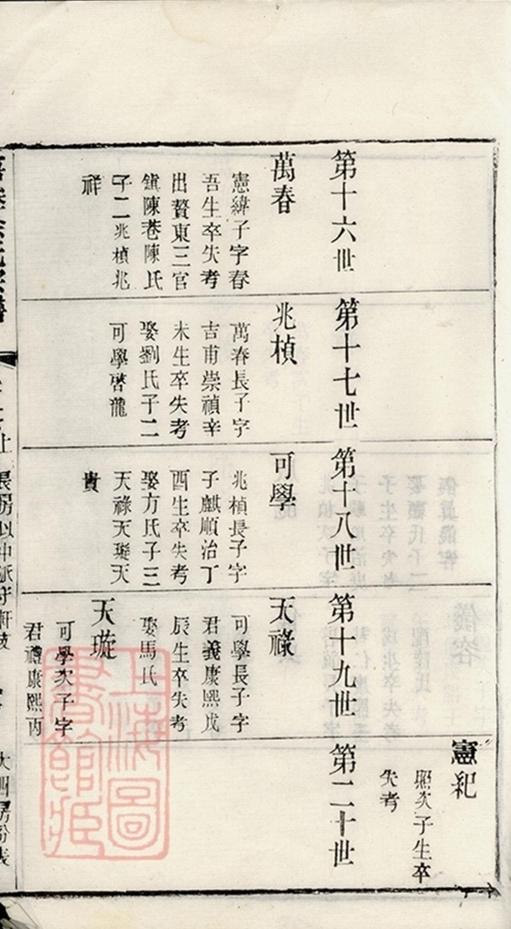 憲紀
熙次子生卒
失考
第十六世
萬春
憲緯子字春
吾生卒失考
出贅東三官
鎮陳巷陳氏
子二兆楨兆
祥
第十七世
兆楨
萬春長子字
吉甫崇禎辛
未生卒失考
娶劉氏子二
可學啓龍
第十八世
可學
兆楨長子字
子麒順治丁
酉生卒失考
娶方氏子三
天祿天璇天
貴
第十九世
天祿
可學長子字
君義康熙戊
辰生卒失考
娶馬氏
天璇
可學次子字
君禮康熙丙
第二十世
上海圖
書館藏